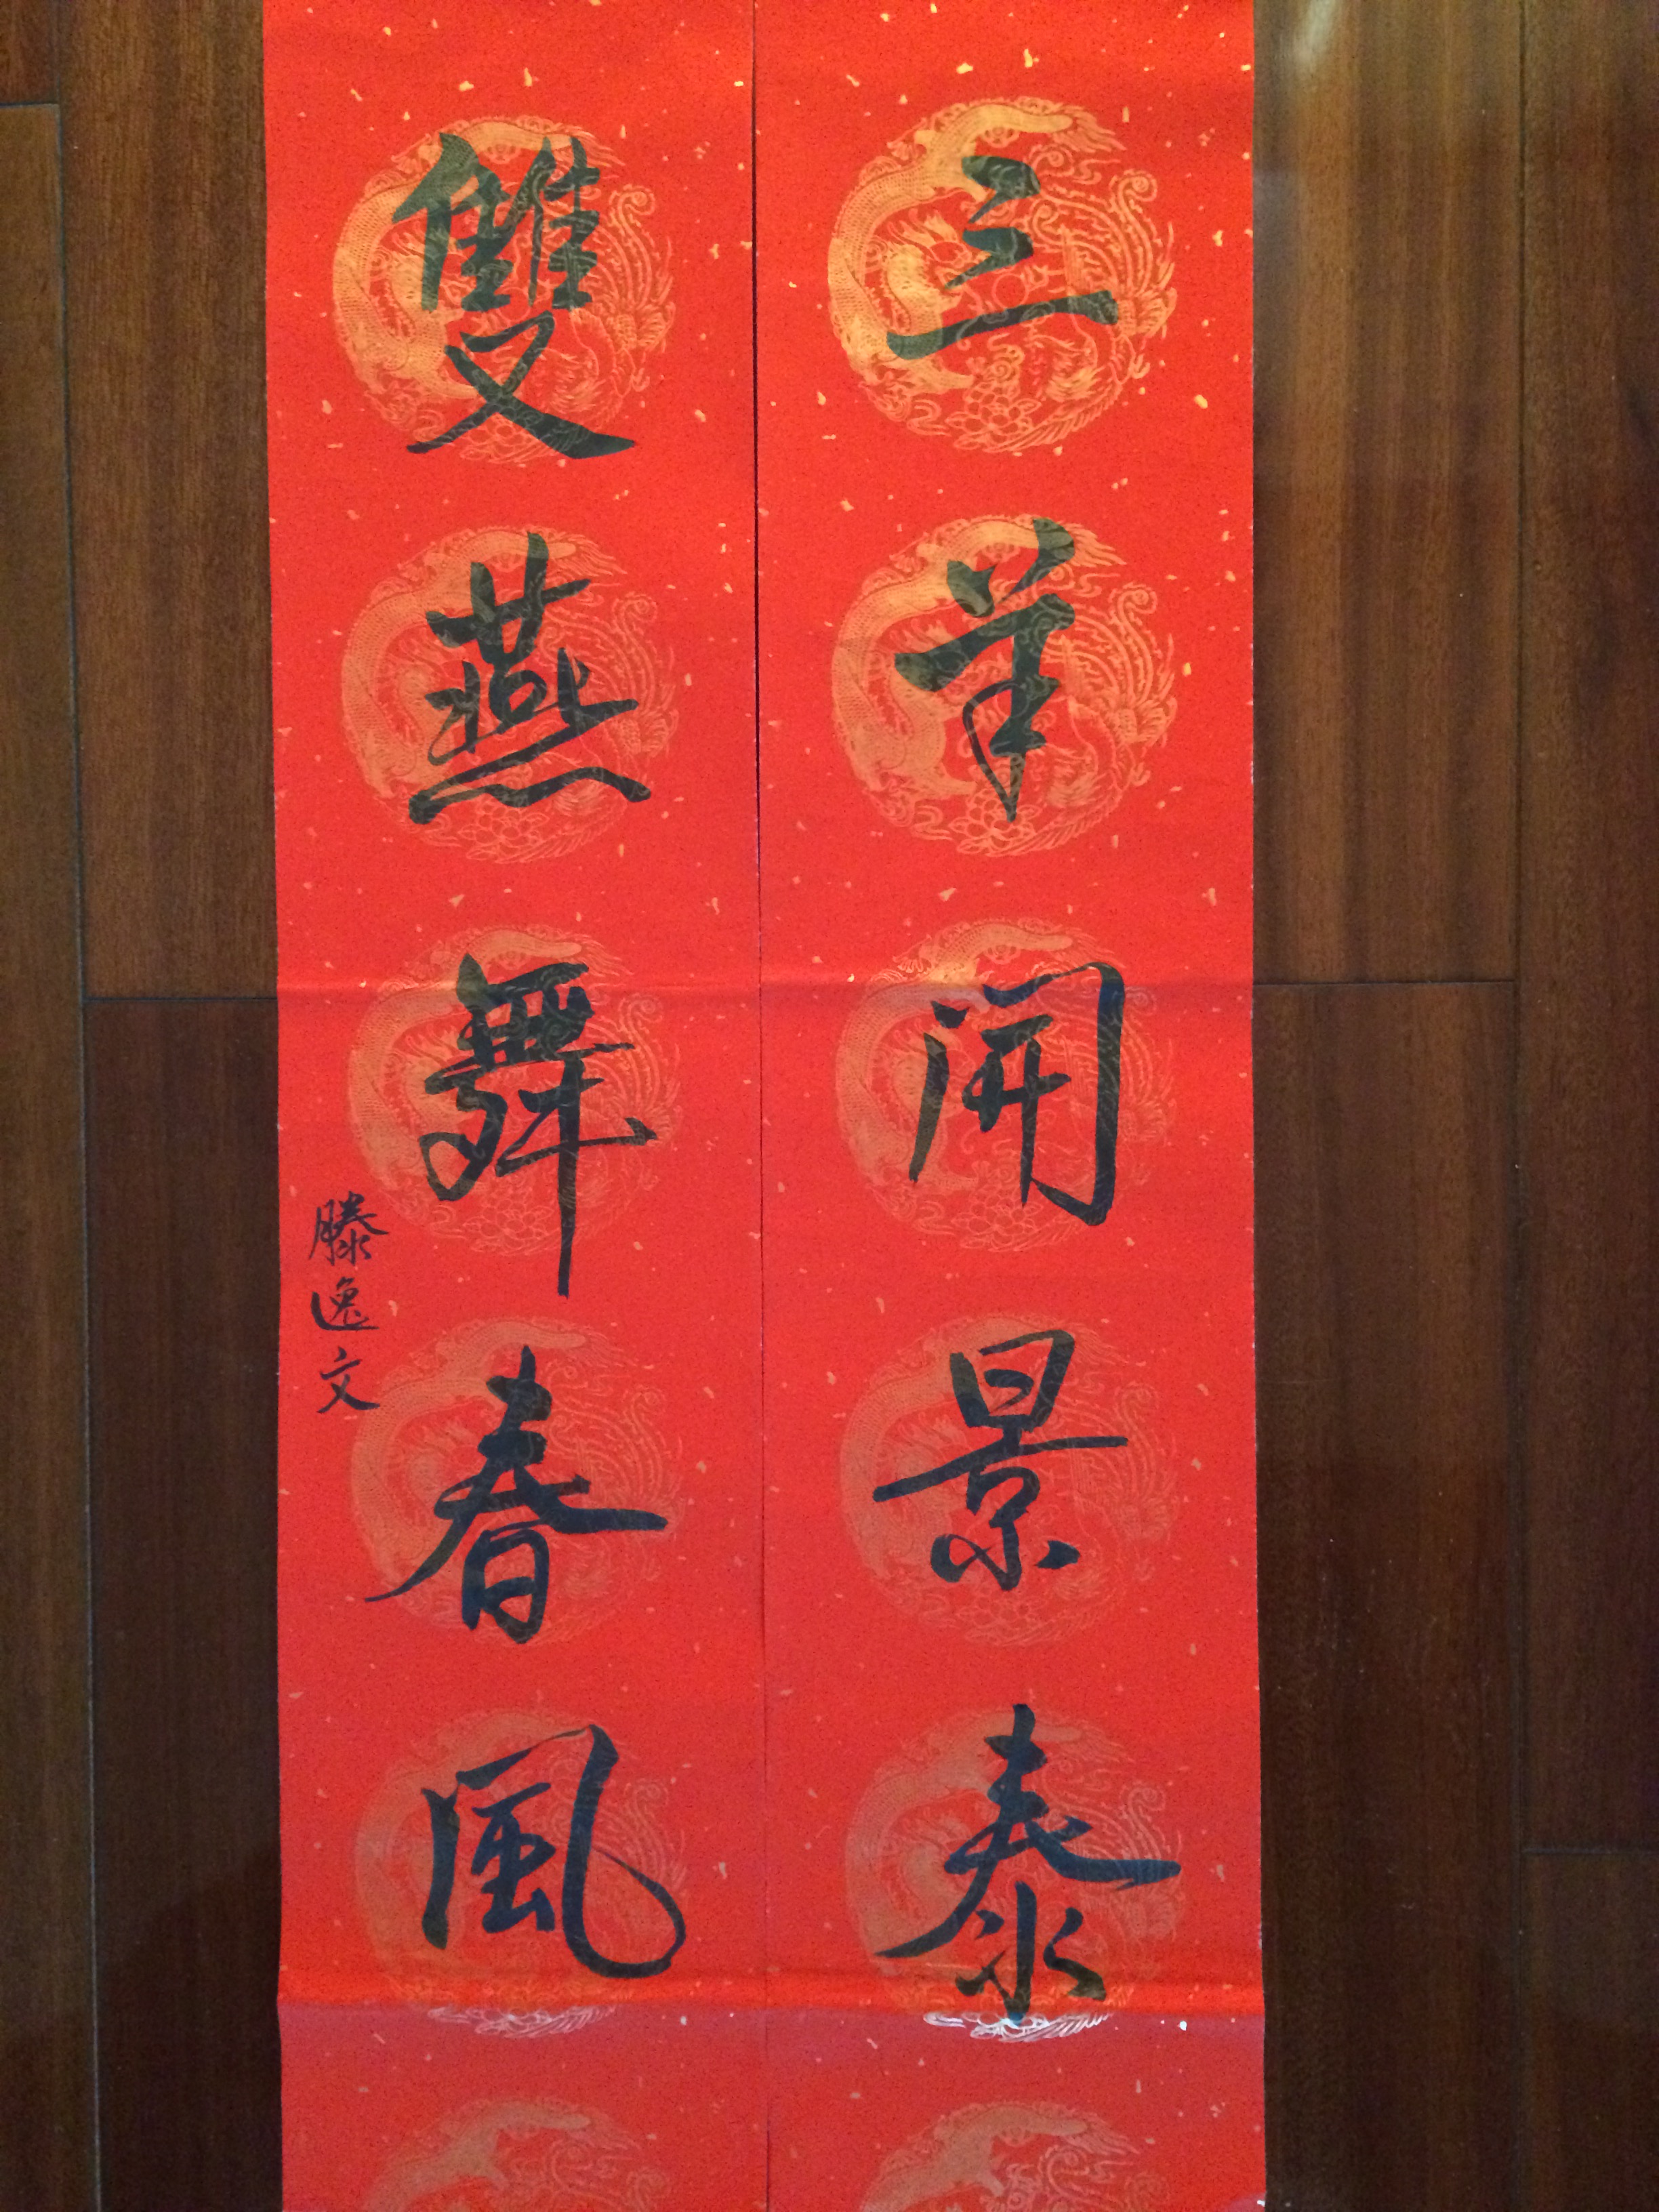 三羊開景泰
雙燕舞春風
滕逸文